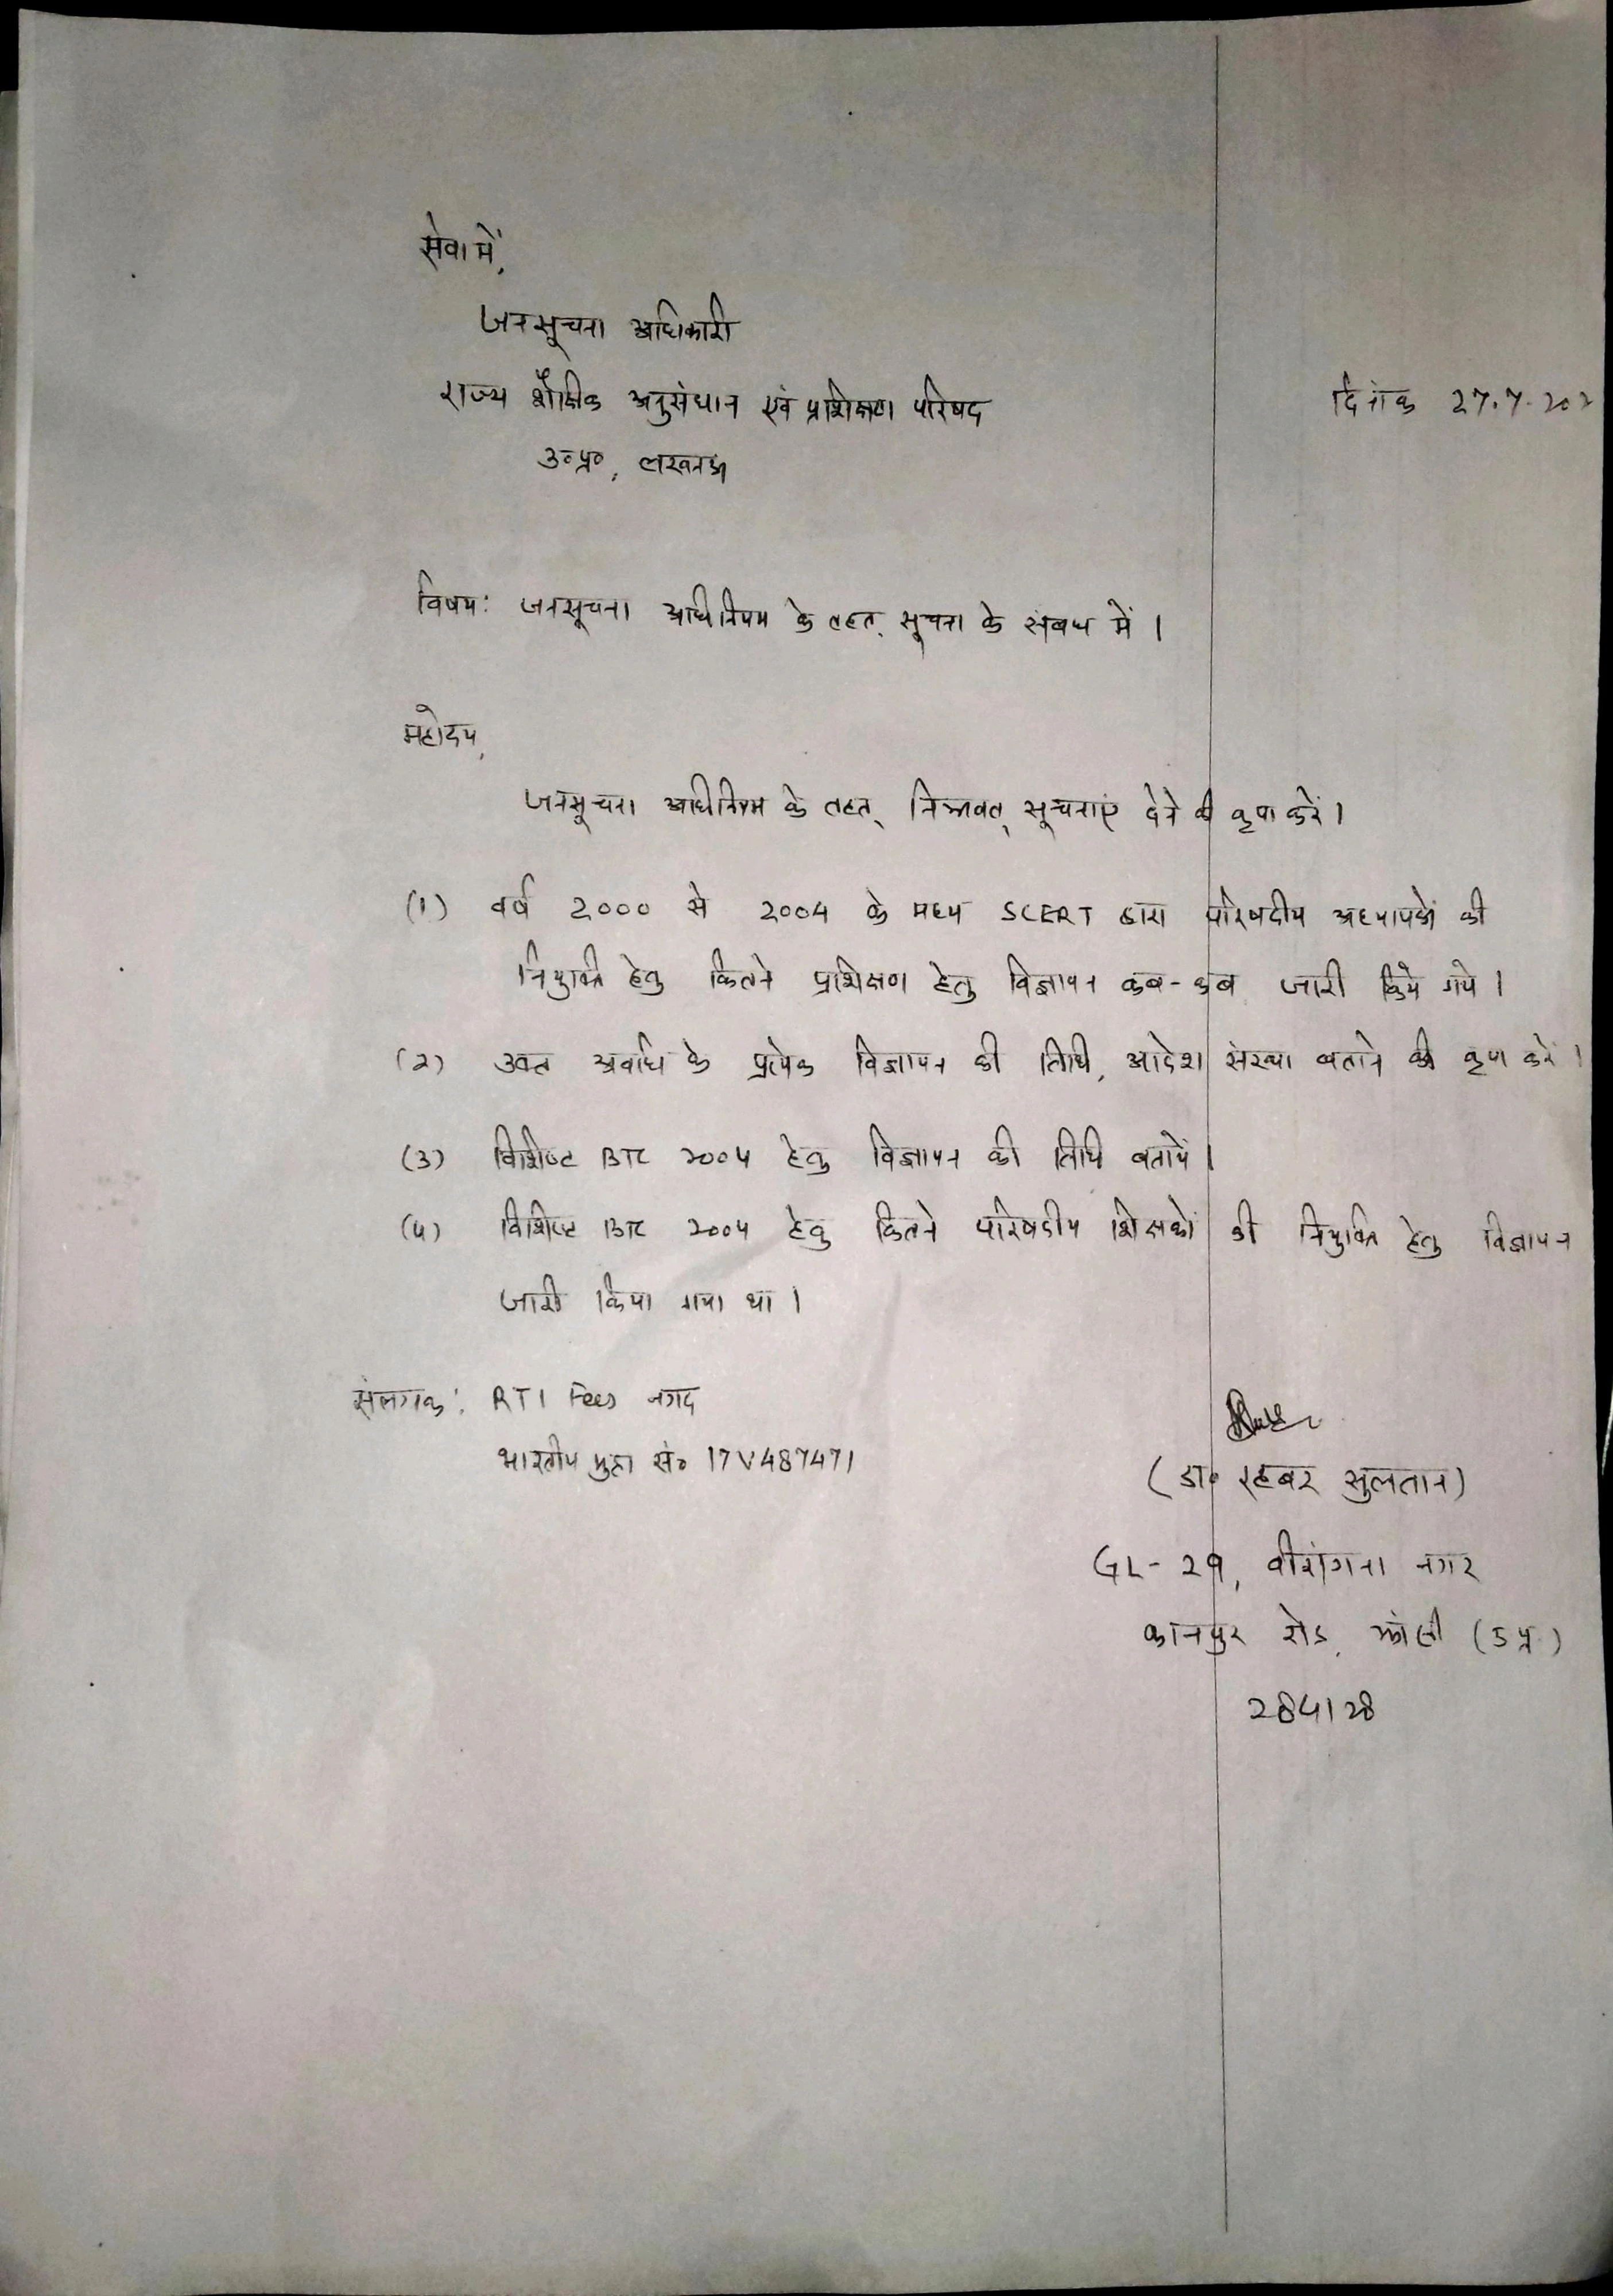 सेवा में,
जनसूचना अधिकारी
राज्य शैक्षिक अनुसंधान एवं प्रशिक्षण परिषद
दिनांक 27.7.202
उ०प्र०, लखनऊ
विषय: जनसूचना अधिनियम के तहत् सूचना के संबध में ।
महोदय,
जनसूचना अधिनियम के तहत् निम्नवत् सूचनाएं देने की कृपा करें ।
(1) वर्ष 2000 से 2004 के मध्य SCERT द्वारा परिषदीय अध्यापकों की
नियुक्ति हेतु कितने प्रशिक्षण हेतु विज्ञापन कब-कब जारी किये गये ।
(2) उक्त अवधि के प्रत्येक विज्ञापन की तिथि, आदेश संख्या बताने की कृपा करें ।
(3) विशिष्ट BTC 2004 हेतु विज्ञापन की तिथि बतायें ।
(4) विशिष्ट BTC 2004 हेतु कितने परिषदीय शिक्षकों की नियुक्ति हेतु विज्ञापन
जारी किया गया था ।
संलग्नक: RTI Fees नगद
भारतीय मुद्रा सं० 17V487471
(डा० रहबर सुलतान)
GL-29, वीरांगना नगर
कानपुर रोड, झांसी (उ प्र.)
284128